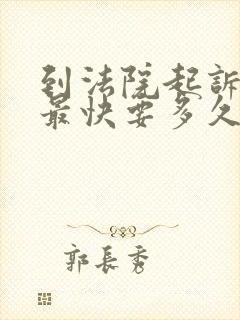 到法院起訴
最快要多久
郭長秀